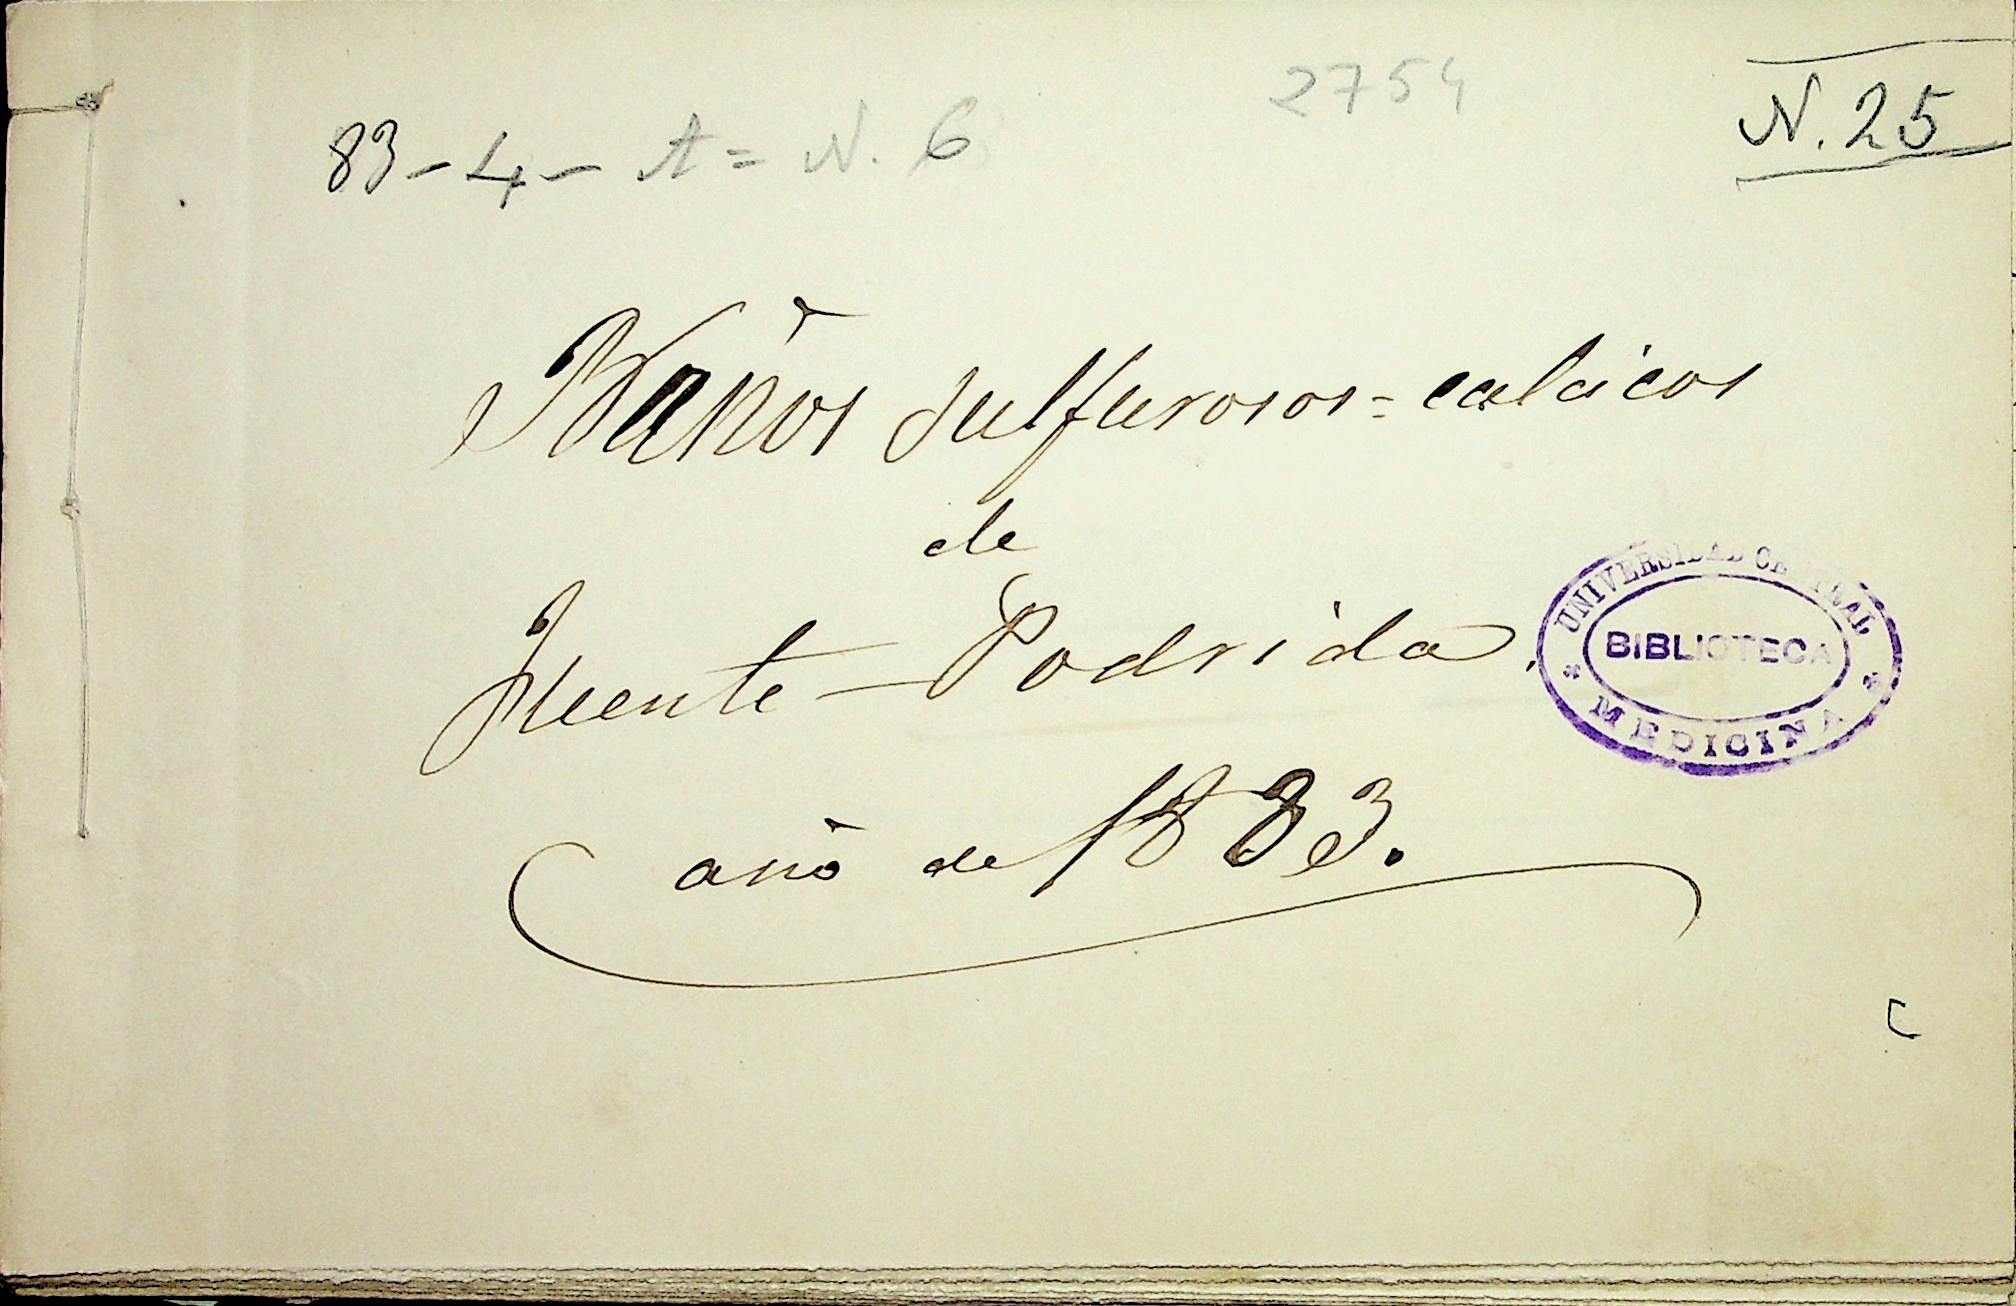 2754
N. 25
83-4- A = N. 6
Baños sulfurosos=calcicos
de
Fuente-Podrida.
año de 1883.
UNIVERSIDAD CENTRAL
BIBLIOTECA
MEDICINA